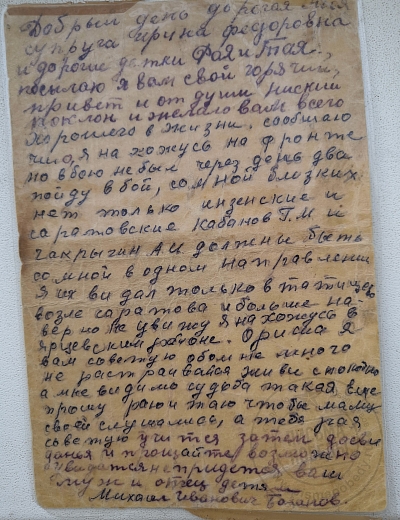 Добрый день дорогая моя
супруга Ирина Федоровна
и дорогие детки Фая и Тая.,
посылаю я вам свой горячий,
привет и от души низкий
поклон и желаю вам всего
хорошего в жизни, сообщаю
что, я на хожусь на фронте
но в бою не был через день два
пойду в бой, со мной близких
нет только инзенские и
саратовские Кабанов Г.М и
Чакрыгин А.И. должны быть
со мной в одном направлении
я их ви дал только в татищево
возле саратова и больше на-
верно не увижу я на хожусь в
ярцевским районе. Ориша я
вам советую обо мне много
не растраивайся живи спокойно
а мне видимо судьба такая еще
прошу раю и таю чтобы маму
свою слушались, а тебя
советую учится затем досви
данья и прощайте возможно
увидатся не придется ваш
муж и отец детям
Михаил Иванович